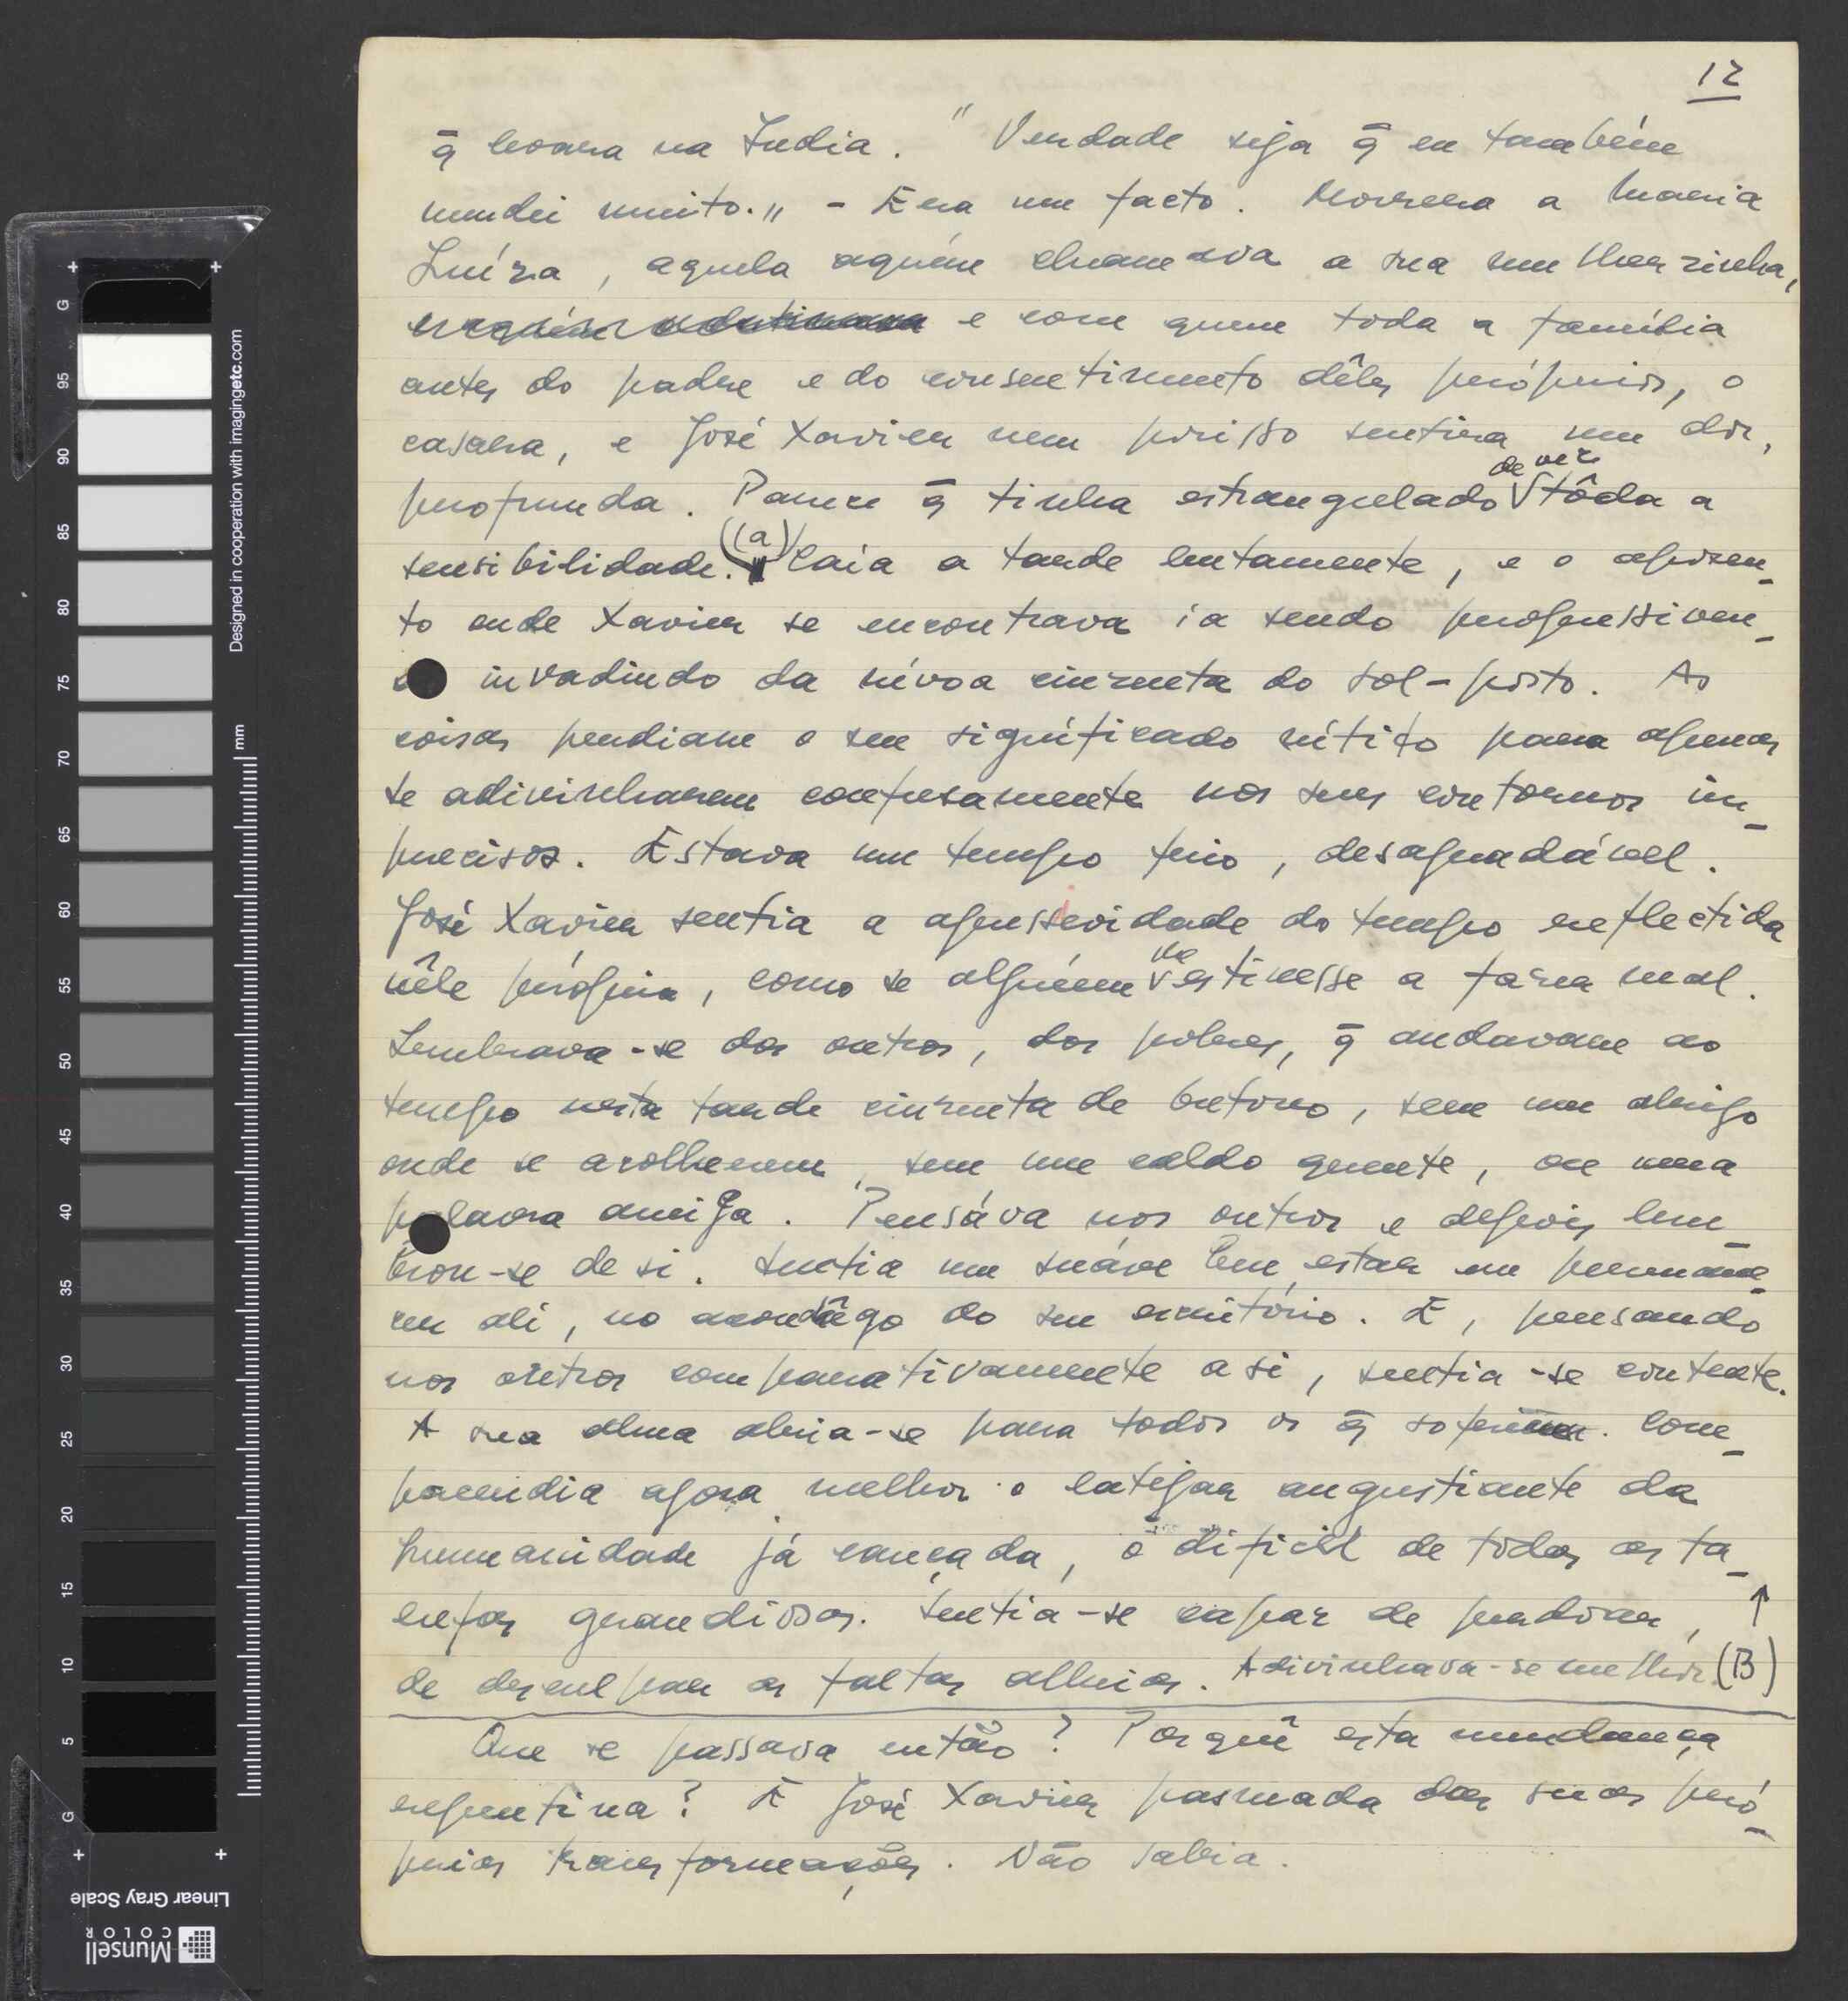 12
q̃ levara na India. " Verdade seja q̃ eu também
mudei muito.,, - Era um facto. Morrera a Maria
Luíza, aquela aquém chamava a sua mulherzinha,
e com quem toda a família
antes do padre e do consentimento dêles próprios, o
casara, e José Xavier nem porisso sentira um dor,
profunda. Parece q̃ tinha estrangulado de vez tôda a
sensibilidade. (a) Caía a tarde lentamente, e o aposen-
to onde Xavier se encontrava ia sendo progressivem-
invadindo da névoa cinzenta do sol-posto. As
coisas perdiam o seu significado nítido para apenas
se adivinharem confusamente nos seus contornos im-
precisos. Estava um tempo frio, desagradável.
José Xavier sentia a agressividade do tempo reflectida
nêle próprio, como se alguém lhe estivesse a fazer mal.
Lembrava-se dos outros, dos pobres, q̃ andavam ao
tempo nesta tarde cinzenta de Outono, sem um abrigo
onde se acolherem, sem um caldo quente, ou uma
palavra amiga. Pensáva nos outros e depois lem-
brou-se de si. Sentia um suáve bem estar em permane-
cer ali, no aconchêgo do seu escritório. E, pensando
nos outros comparativamente a si, sentia-se contente.
A sua alma abria-se para todos os q̃ sofriam. Com-
preendia agora melhor o latejar angustiante da
humanidade já cançada, o dificil de todas as ta-
refas grandiosas. Sentia-se capaz de perdoar, ↑
de desculpar as faltas alheias. Adivinhava-se melhor. (B)
Que se passava então? Porquê esta mudança
repentina? E José Xavier pasmada das suas pró-
prias transformações. Não sabia.
Designed in cooperation with imagingetc.com
mm
G 95 90 85 80 75 70 65 60 55 50 45 40 35 30 25 20 15 10 5 G
Linear Gray Scale
Munsell
COLOR